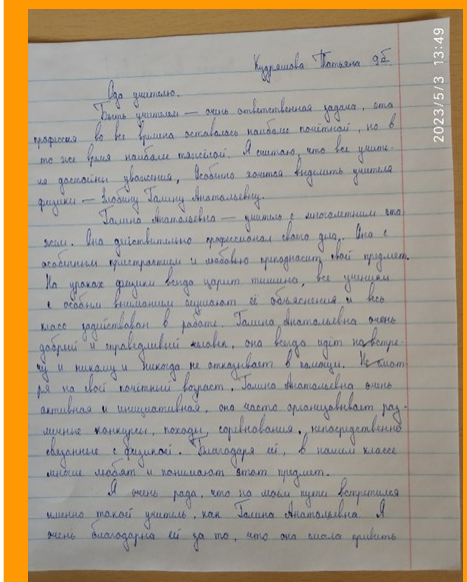 Кудряшова Татьяна 9Б
2023/5/3 13:49
Ода учителю.
Быть учителем — очень ответственная задача, эта
профессия во все времена оставалась наиболее почётной, но в
то же время наиболее тяжёлой. Я считаю, что все учите-
ля достойны уважения. Особенно хочется выделить учителя
физики — Галину Анатольевну.
Галина Анатольевна — учитель с многолетним ста
жем. Она действительно профессионал своего дела. Она с
особенным пристрастием и любовью преподносит свой предмет.
На уроках физики всегда царит тишина, все ученики
с особым вниманием слушают её объяснения и весь
класс задействован в работе. Галина Анатольевна очень
добрый и справедливый человек, она всегда идёт на встре
чу и никому и никогда не отказывает в помощи. Не смот
ря на свой почётный возраст, Галина Анатольевна очень
активная и инициативная, она часто организовывает раз-
личные конкурсы, походы, соревнования, непосредственно
связанные с физикой. Благодаря ей, в нашем классе
многие любят и понимают этот предмет.
Я очень рада, что на моём пути встретился
именно такой учитель, как Галина Анатольевна. Я
очень благодарна ей за то, что она смогла привить